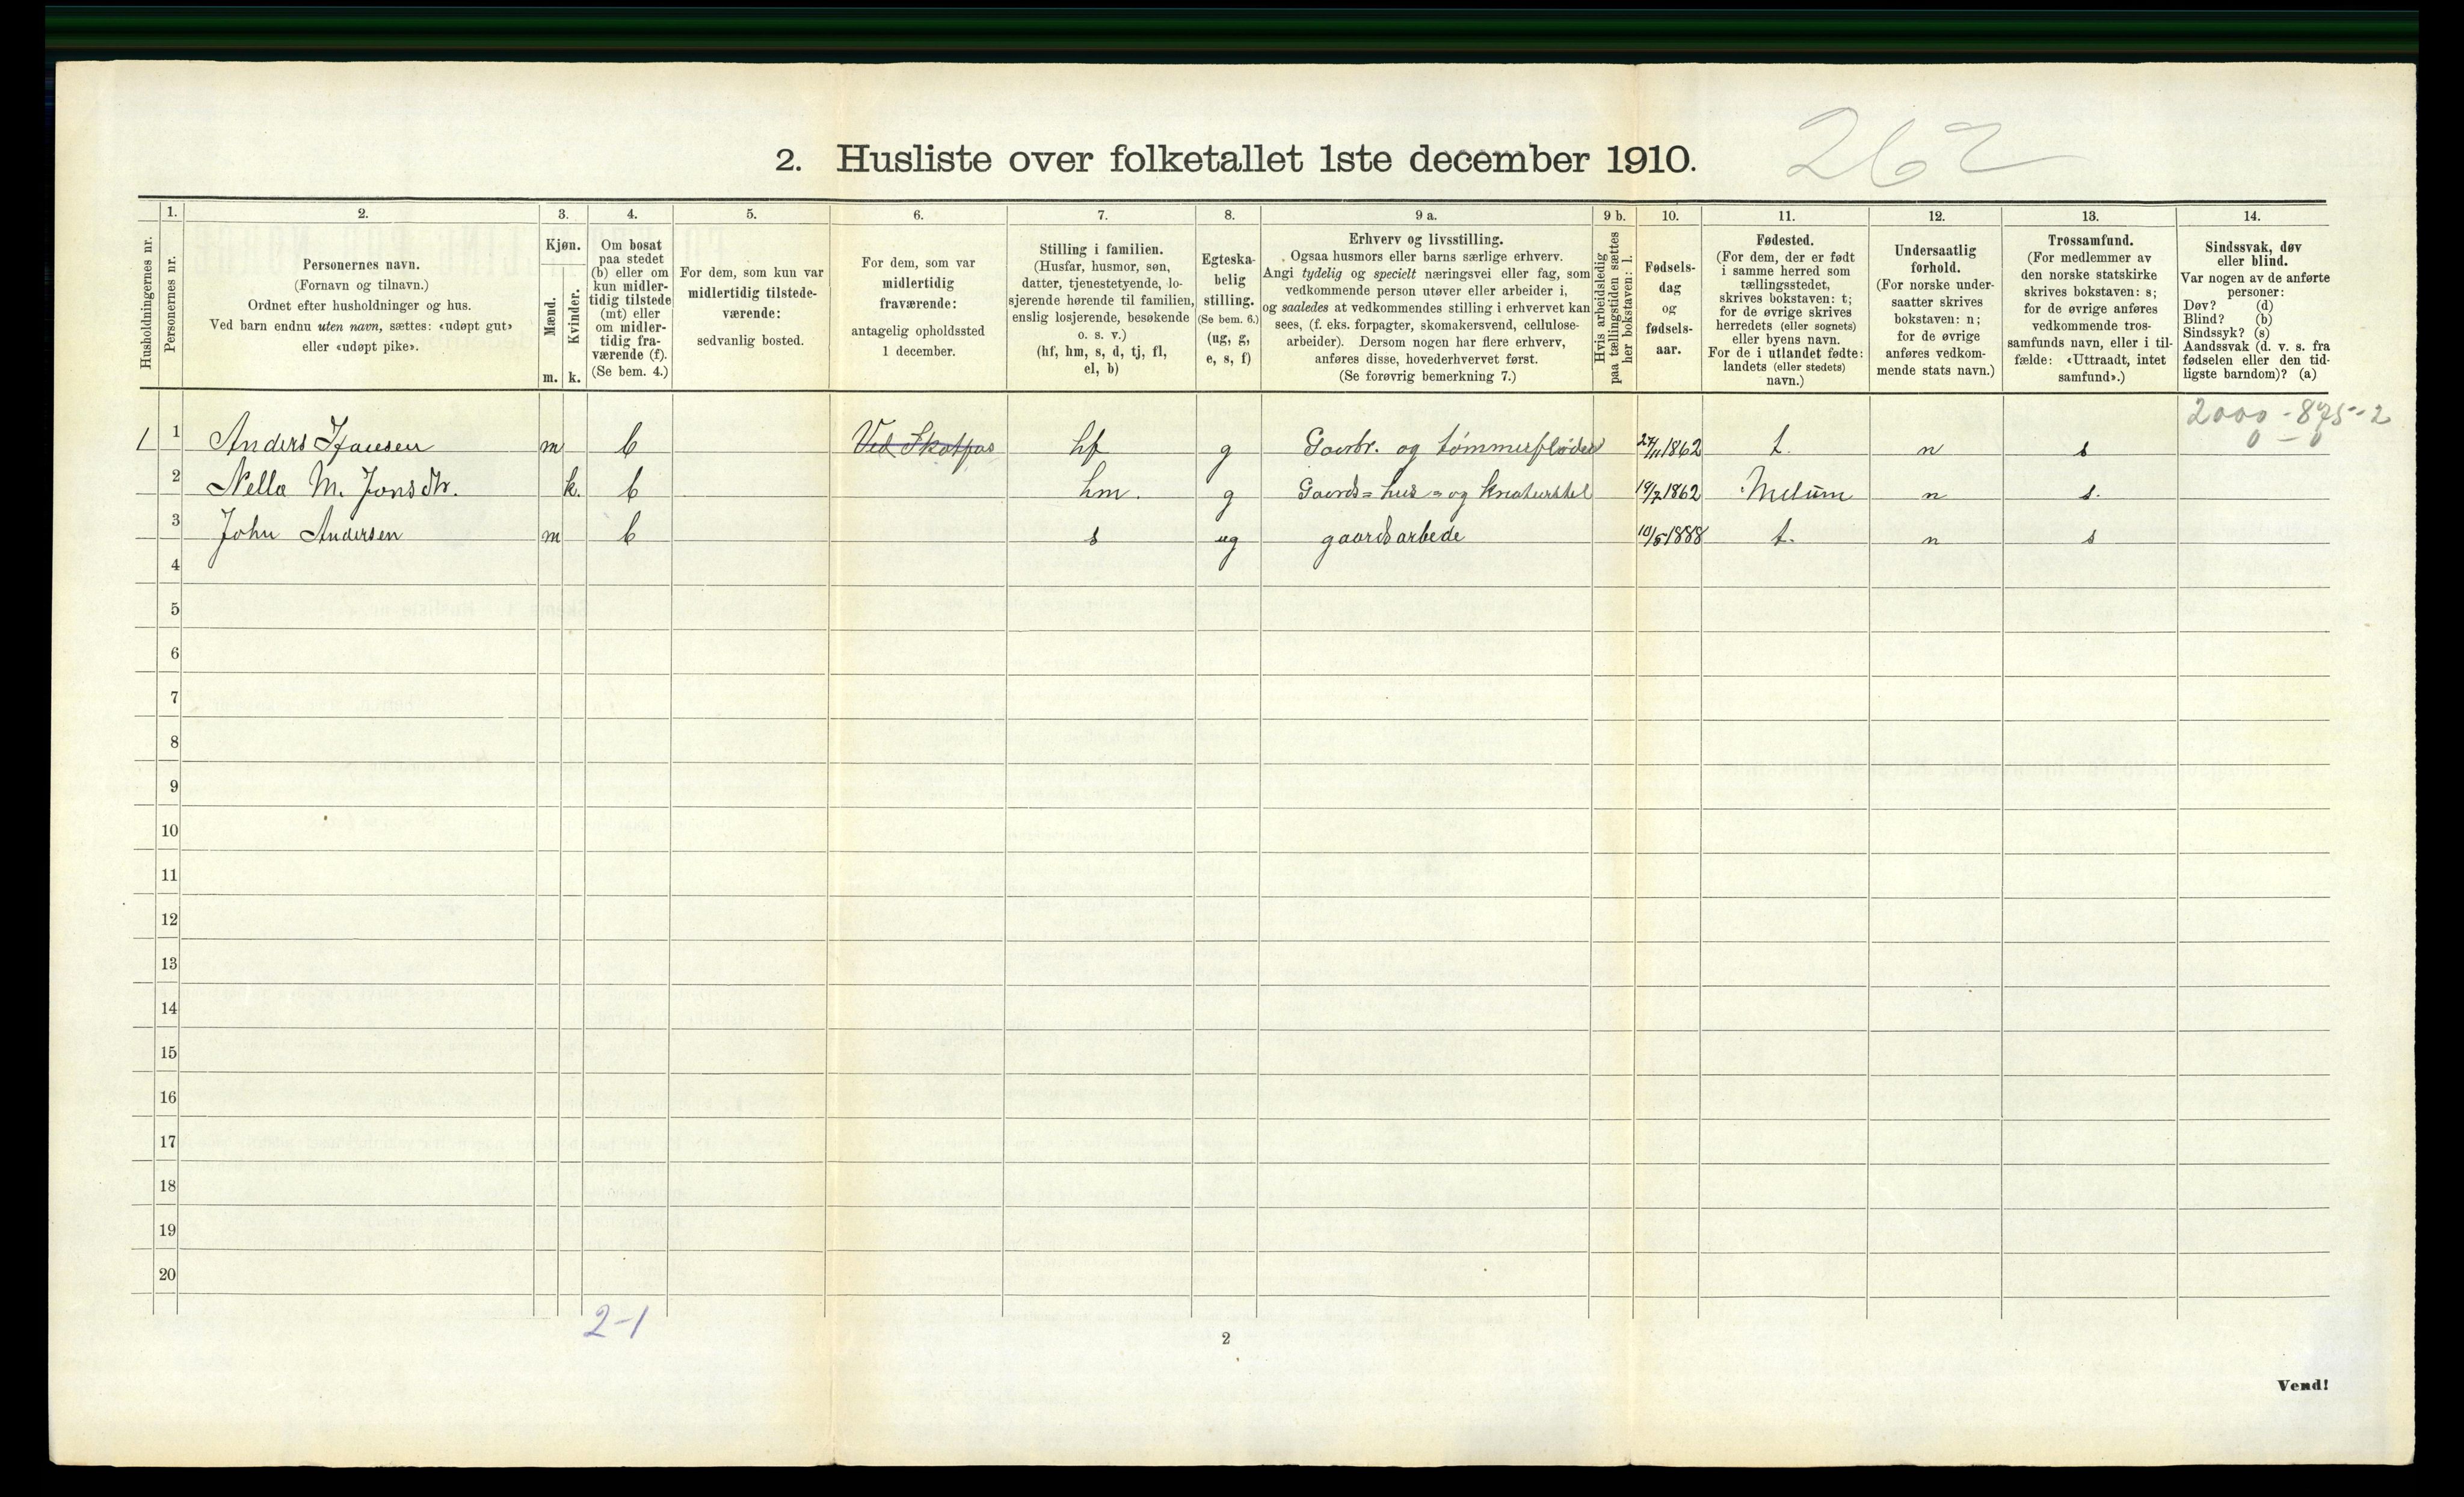 262
2. Husliste over folketallet 1ste december 1910.
Husholdningernes nr.
1.
Personernes nr.
2.
Personernes navn.
(Fornavn og tilnavn.)
Ordnet efter husholdninger og hus.
Ved barn endnu uten navn, sættes: «udøpt gut»
eller «udøpt pike».
3.
Kjøn.
Mænd.
Kvinder.
m. k.
4.
Om bosat
paa stedet
(b) eller om
kun midler-
tidig tilstede
(mt) eller
om midler-
tidig fra-
værende (f).
(Se bem. 4.)
5.
For dem, som kun var
midlertidig tilstede-
værende:
sedvanlig bosted.
6.
For dem, som var
midlertidig
fraværende:
antagelig opholdssted
1 december.
7.
Stilling i familien.
(Husfar, husmor, søn,
datter, tjenestetyende, lo-
sjerende hørende til familien,
enslig losjerende, besøkende
o. s. v.)
(hf, hm, s, d, tj, fl,
el, b)
8.
Egteska-
belig
stilling.
(Se bem. 6.)
(ug, g,
e, s, f)
9 a.
Erhverv og livsstilling.
Ogsaa husmors eller barns særlige erhverv.
Angi tydelig og specielt næringsvei eller fag, som
vedkommende person utøver eller arbeider i,
og saaledes at vedkommendes stilling i erhvervet kan
sees, (f. eks. forpagter, skomakersvend, cellulose-
arbeider). Dersom nogen har flere erhverv,
anføres disse, hovederhvervet først.
(Se forøvrig bemerkning 7.)
9 b.
Hvis arbeidsledig
paa tællingstiden sættes
her bokstaven: l.
10.
Fødsels-
dag
og
fødsels-
aar.
11.
Fødested.
(For dem, der er født
i samme herred som
tællingsstedet,
skrives bokstaven: t;
for de øvrige skrives
herredets (eller sognets)
eller byens navn.
For de i utlandet fødte:
landets (eller stedets)
navn.)
12.
Undersaatlig
forhold.
(For norske under-
saatter skrives
bokstaven: n;
for de øvrige
anføres vedkom-
mende stats navn.)
13.
Trossamfund.
(For medlemmer av
den norske statskirke
skrives bokstaven: s;
for de øvrige anføres
vedkommende tros-
samfunds navn, eller i til-
fælde: «Uttraadt, intet
samfund».)
14.
Sindssvak, døv
eller blind.
Var nogen av de anførte
personer:
Døv? (d)
Blind? (b)
Sindssyk? (s)
Aandssvak (d. v. s. fra
fødselen eller den tid-
ligste barndom)? (a)
2000 - 875 - 2
0 - 0
1 1 Anders Hansen m b Ved Skotfos hf g Gaarbr. og tømmerfløder 27/11 1862 t. n s
2 Nella M. Jonsdtr. k. b hm. g Gaards= hus = og kreaturstel 19/7 1862 Melum n s.
3 John Andersen m b s ug gaardsarbede 10/5 1888 t. n s
4
5
6
7
8
9
10
11
12
13
14
15
16
17
18
19
20
2-1
2
Vend!